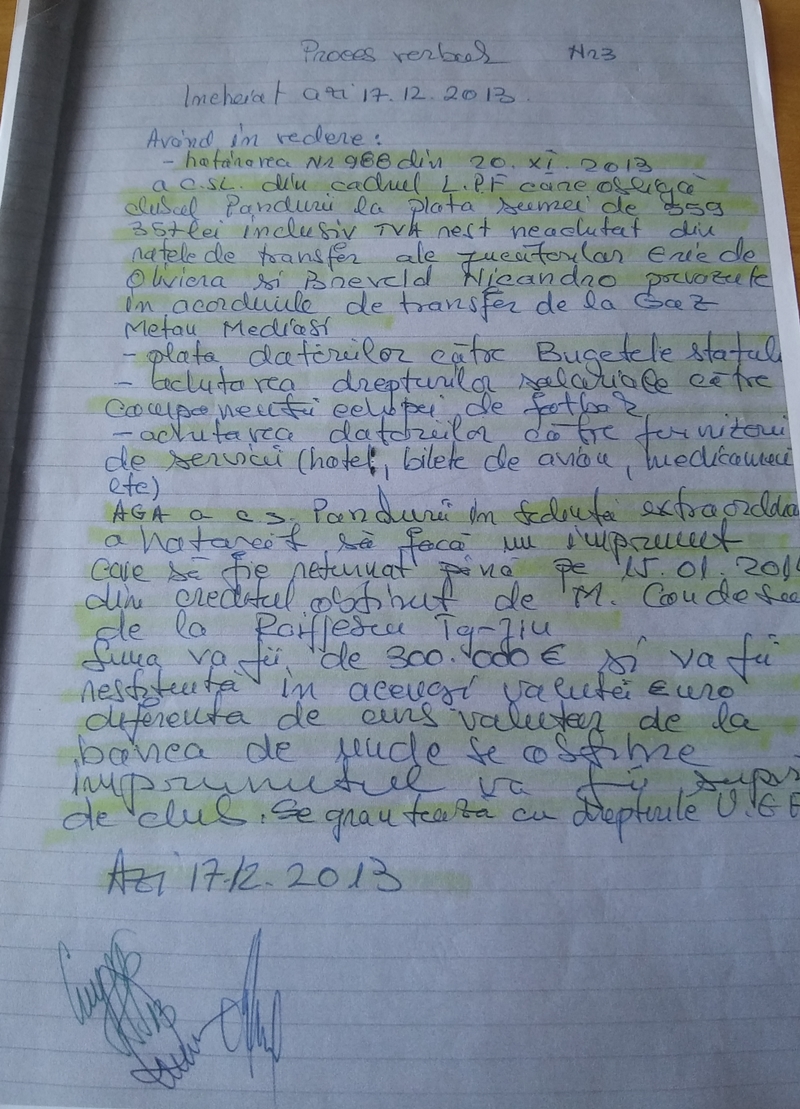 Proces verbal Nr3
Incheiat azi 17.12.2013.
Având în vedere:
- hotărârea Nr 988 din 20.XI.2013
a C.SL. din cadrul L.P.F care obligă
clubul Pandurii la plata sumei de 359
357 lei inclusiv TVA rest neachitat din
ratele de transfer ale jucătorilor Eric de
Oliviera si Breveld Nicandro prevăzute
în acordurile de transfer de la Gaz
Metan Mediasi
- plata datoriilor către Bugetele statul
- achitarea drepturilor salariale către
componentii echipei de fotbal
- achitarea datoriilor către furnizorii
de servicii (hotel, bilete de avion, medicamen
etc)
AGA a C.S. Pandurii în sedinta extraordina
a hotarât să facă un imprumut
care să fie returnat până pe 15.01.2014
din creditul obtinut de M. Condesc
de la Raiffescu Tg-Jiu
Suma va fii de 300.000 € si va fii
restituită în aceeasi valută Euro
diferenta de curs valutar de la
banca de unde se obtine
imprumutul va fii supor
de club. Se garantează cu drepturile U.E.F
Azi 17.12.2013